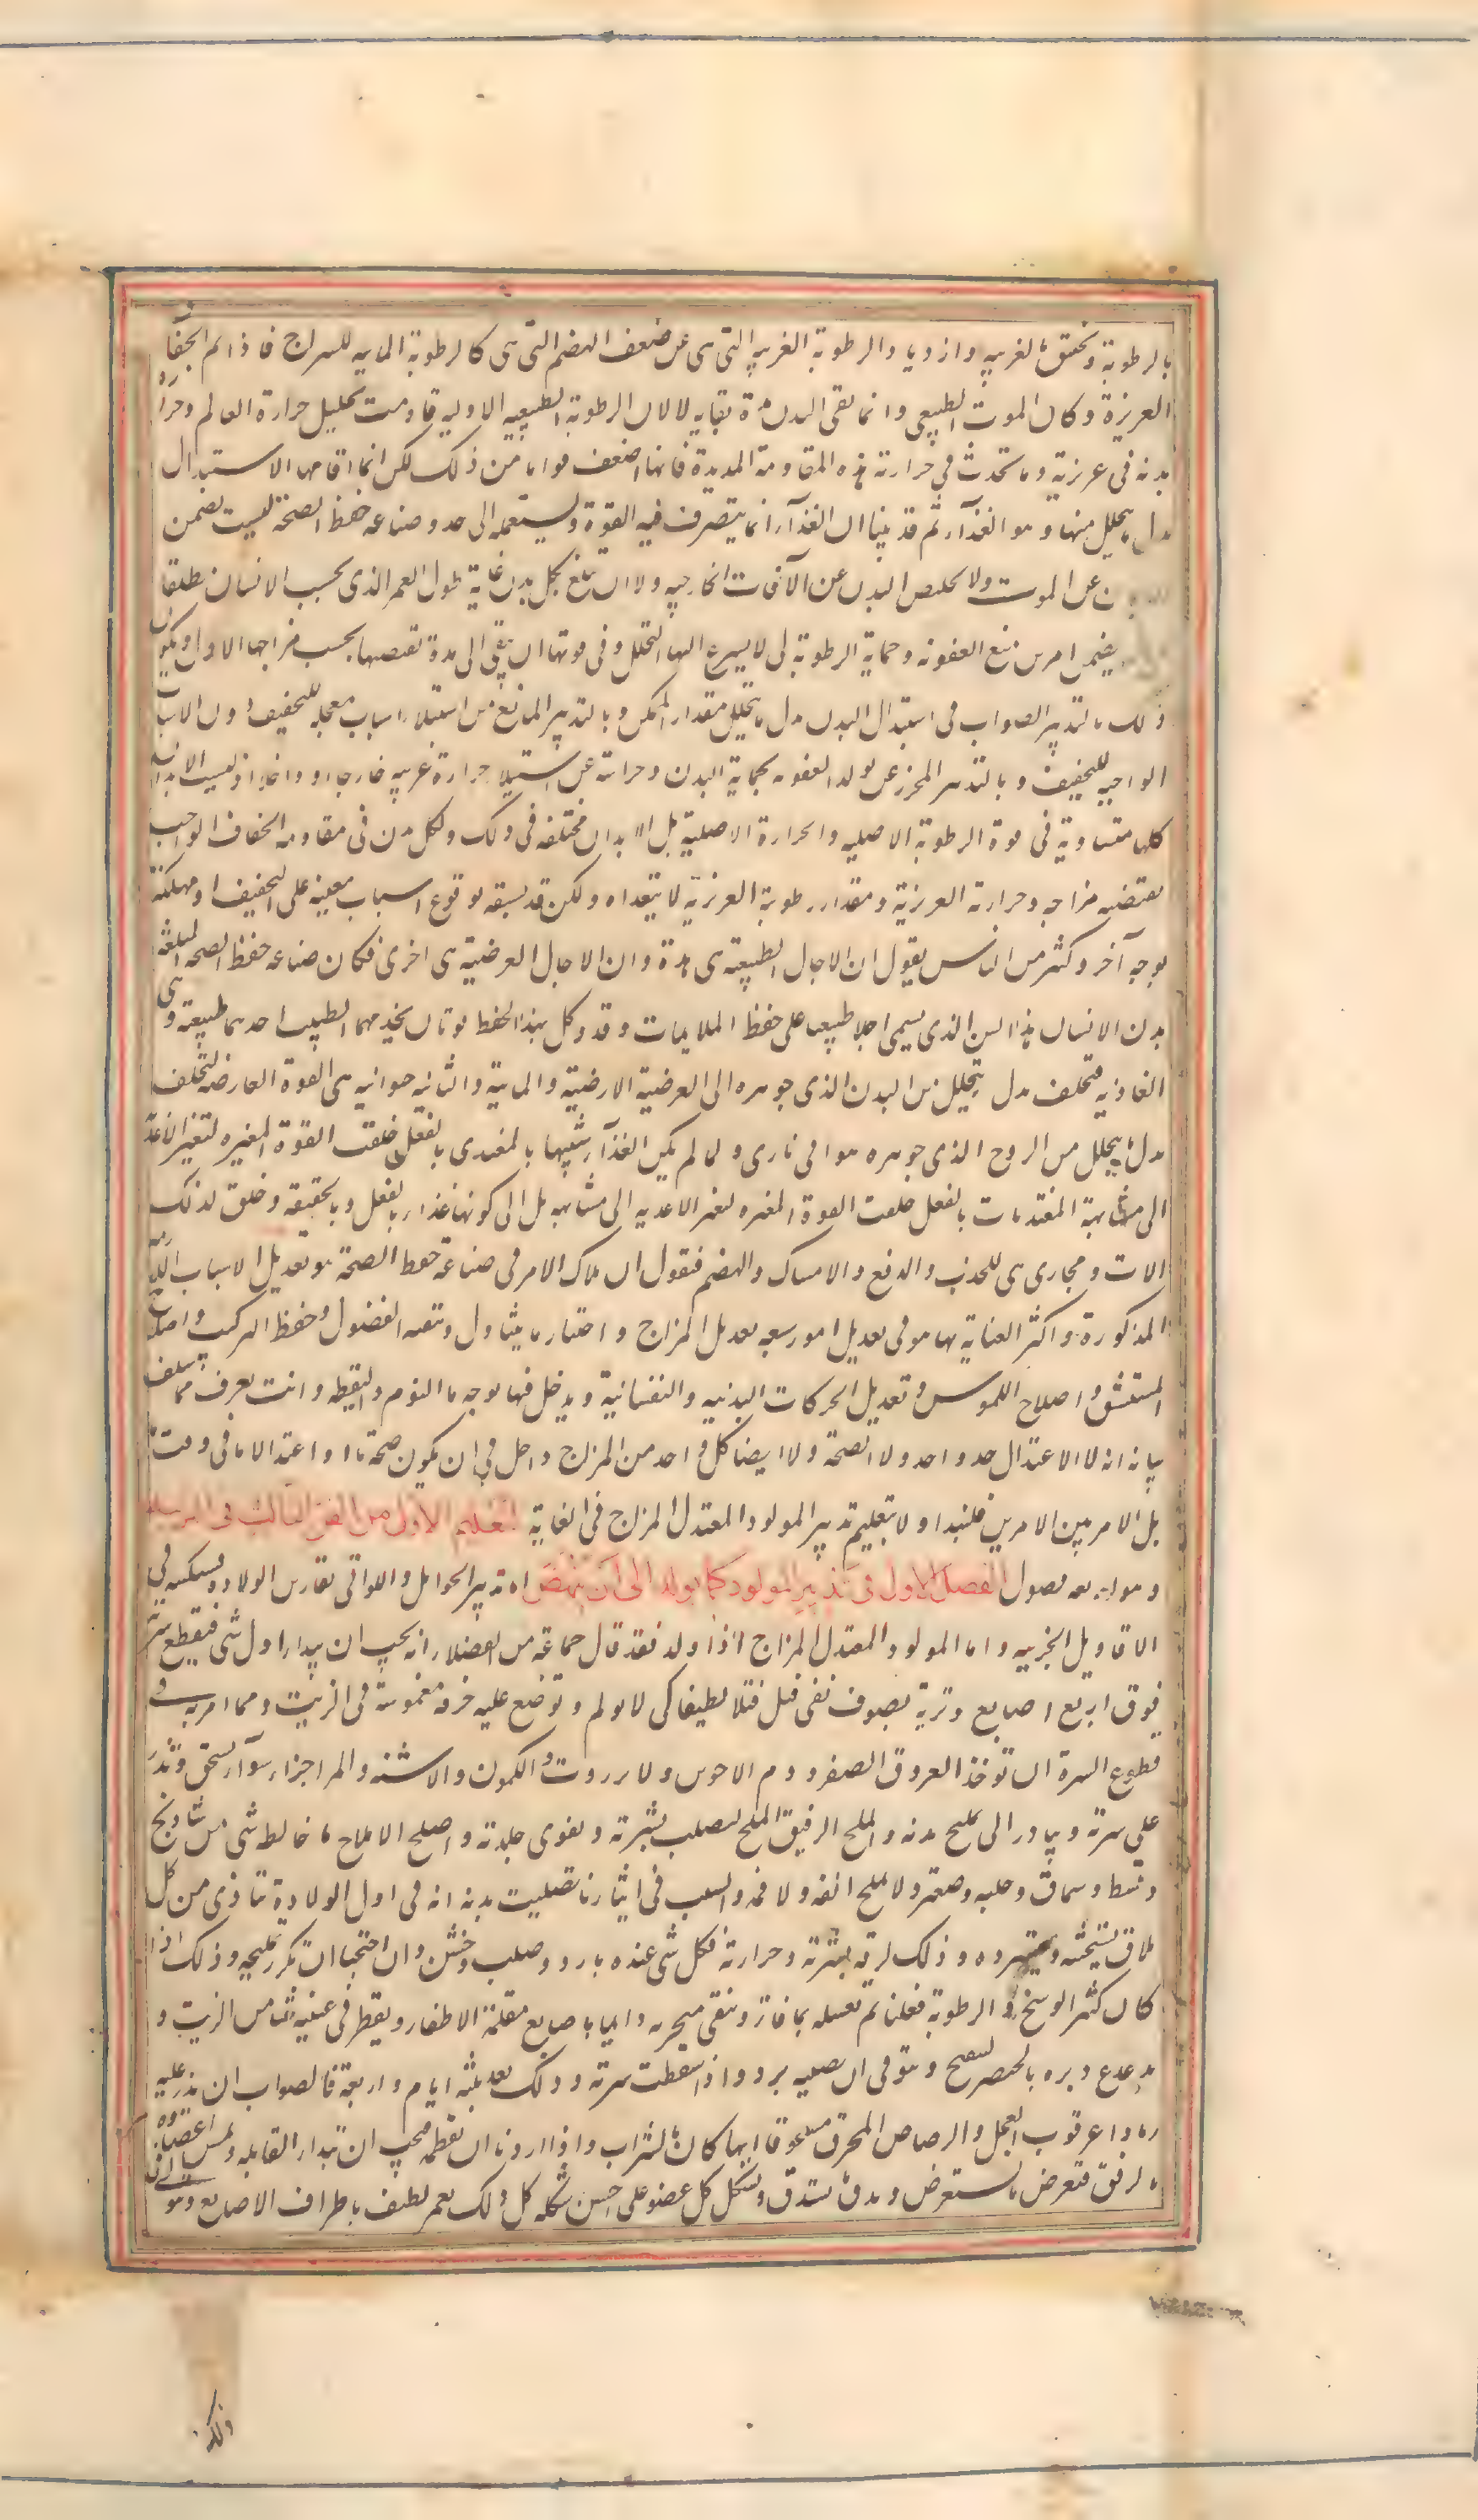 بالرطوبة وتختنق بالغريبه وازدياد الرطوبة الغريبه التى هى عن ضعف الهضم التى هى كالرطوبة المايه للسراج فاذا تم الجفاف
العريزة وكان الموت الطبيعى وانما بقى البدن مدة بقايه لا لان الرطوبة الطبيعيه الاوليه قاومت تحليل حرارة العالم وحرارة
بدنه فى عريزية وما تحدث فى حرارته هذه المقاومة المديدة فانها اضعف مقاومة من ذلك لكن انما اقامها الاستبدال
بدل ما يتحلل منها وهو الغذآء ثم قد بينا ان الغذآء انما يتصرف فيه القوة وتستعمله الى حد وصناعه حفظ الصحة ليست تضمن
عن الموت ولا تخليص البدن عن الآفات الخارجيه ولا ان تبلغ بكل بدن غاية طول العمر الذى يحسب الانسان مطلقا
يضمن امرين منع العفونه وحماية الرطوبة لى لا يسرع اليها التحلل وفى قوتها ان تبقى الى مدة تقتضيها بحسب مزاجها الاول ويكون
ذلك بالتدبير الصواب فى استبدال البدن بدل ما يتحلل مقدار الممكن وبالتدبير المانع من استيلاء اسباب معجله للتجفيف دون الاسباب
الواجبه للتجفيف وبالتدبير المحرز عن تولد العفونه بحماية البدن وحراسته عن استيلاء حرارة غريبه خارجا او داخلا اذ ليست الابدان
كلها متساوية فى قوة الرطوبة الاصليه والحرارة الاصلية بل الابدان مختلفه فى ذلك ولكل بدن فى مقاومه الجفاف الواجب
يقتضيه مزاجه وحرارته العريزية ومقدار رطوبة العريزية لا يتعداه ولكن قد يسبقه بوقوع اسباب معينه على التجفيف او مهلكة
بوجه آخر وكثير من الناس يقول ان الاجال الطبيعة هى هذه وان الاجال العرضية هى اخرى فكان صناعه حفظ الصحه المبلغة
بدن الانسان هذا السن الذى يسمى اجلا طبيعيا على حفظ الملايمات وقد وكل بهذا الحفظ قوتان يخدمهما الطبيب احديهما طبيعية وهى
الغاذيه فتخلف بدل ما يتحلل من البدن الذى جوهره الى العرضية الارضية والمايية والثانيه حيوانيه هى القوة العارضه لتخلف
بدل ما يتحلل من الروح الذى جوهره هواى نارى ولما لم يكن الغذآء شبيها بالمغتذى بالفعل خلقت القوة المغيره لتغير الاغذية
الى مشابهة المغتذيات بالفعل خلقت القوة المغيره لتغير الاغذيه الى مشابهه بل الى كونها غذاء بالفعل وبالحقيقه وخلق لذلك
الات ومجارى هى للجذب والدفع والامساك والهضم فنقول ان ملاك الامر فى صناعة حفظ الصحة هو تعديل الاسباب اللازمة
المذكورة واكثر العناية بها هو فى تعديل امور سبعه تعديل المزاج واختيار ما يتناول وتنقيه الفضول وحفظ التركيب واصلاح
المستنشق واصلاح الملبوس وتعديل الحركات البدنيه والنفسانية ويدخل فيها بوجه ما النوم واليقظه وانت تعرف مما سلف
بيانه انه لا الاعتدال حد واحد ولا الصحة ولا ايضا كل واحد من المزاج داخل فى ان يكون صحة ما او اعتدالا ما فى وقت ما
بل الامر بين الامرين فلنبدا ولا بتعليم تدبير المولود المعتدل المزاج فى الغاية التعليم الاول من الفن الثالث فى التربية
وهو اربعه فصول الفصل الاول فى تدبير المولود كما يولد الى ان ينهض اما تدبير الحوامل واللواتى تقاربن الولاده فسنكتبه فى
الاقاويل الجزييه واما المولود المعتدل المزاج اذا ولد فقد قال جماعة من الفضلاء انه يجب ان يبدا اول شى فيقطع سرته
فوق اربع اصابع وتربط بصوف نقى فتل فتلا لطيفا كى لا يولم وتوضع عليه خرقه مغموسة فى الزيت ومما امر به فى
قطوع السرة ان توخذ العروق الصفر ودم الاخوين ولا بزروت والكمون والاشنه والمر اجزاء سوآء يسحق وتذر
على سرته ويبادر الى تمليح بدنه والملح الرقيق الملح لتصلب بشرته وتقوى جلدته واصلح الاملاح ما خالطه شى من شادنج
وقسط وسماق وحلبه وصعتر ولا يملح انفه ولا فمه والسبب فى ايثارنا تصليب بدنه انه فى اول الولادة يتاذى من كل
ملاق يستخشنه ويستبرده وذلك لرقه بشرته وحرارته فكل شى عنده بارد وصلب وخشن وان احتجنا ان تكرر تمليحه وذلك اذا
كان كثير الوسخ والرطوبة فعلنا ثم نغسله بما فاتر وننقى منخريه دايما باصابع مقلمة الاظفار ويقطر فى عينيه شيا من الزيت و
يدغدغ دبره بالخنصر لينفتح ويتوقى ان يصيبه برد واذا سقطت سرته وذلك بعد ثلثه ايام و اربعة فالصواب ان يذر عليه
رماد اعرقوب العجل والرصاص المحرق مسحوقا ايها كان بالشراب واذا اردنا ان نقمطه فيجب ان تبدا القابله وتمس اعضاه
بالرفق فتعرض ما يستعرض وتدق ما يستدق وتشكل كل عضو على احسن شكله كل ذلك بغمز لطيف باطراف الاصابع ويتوالى فى
ذلك